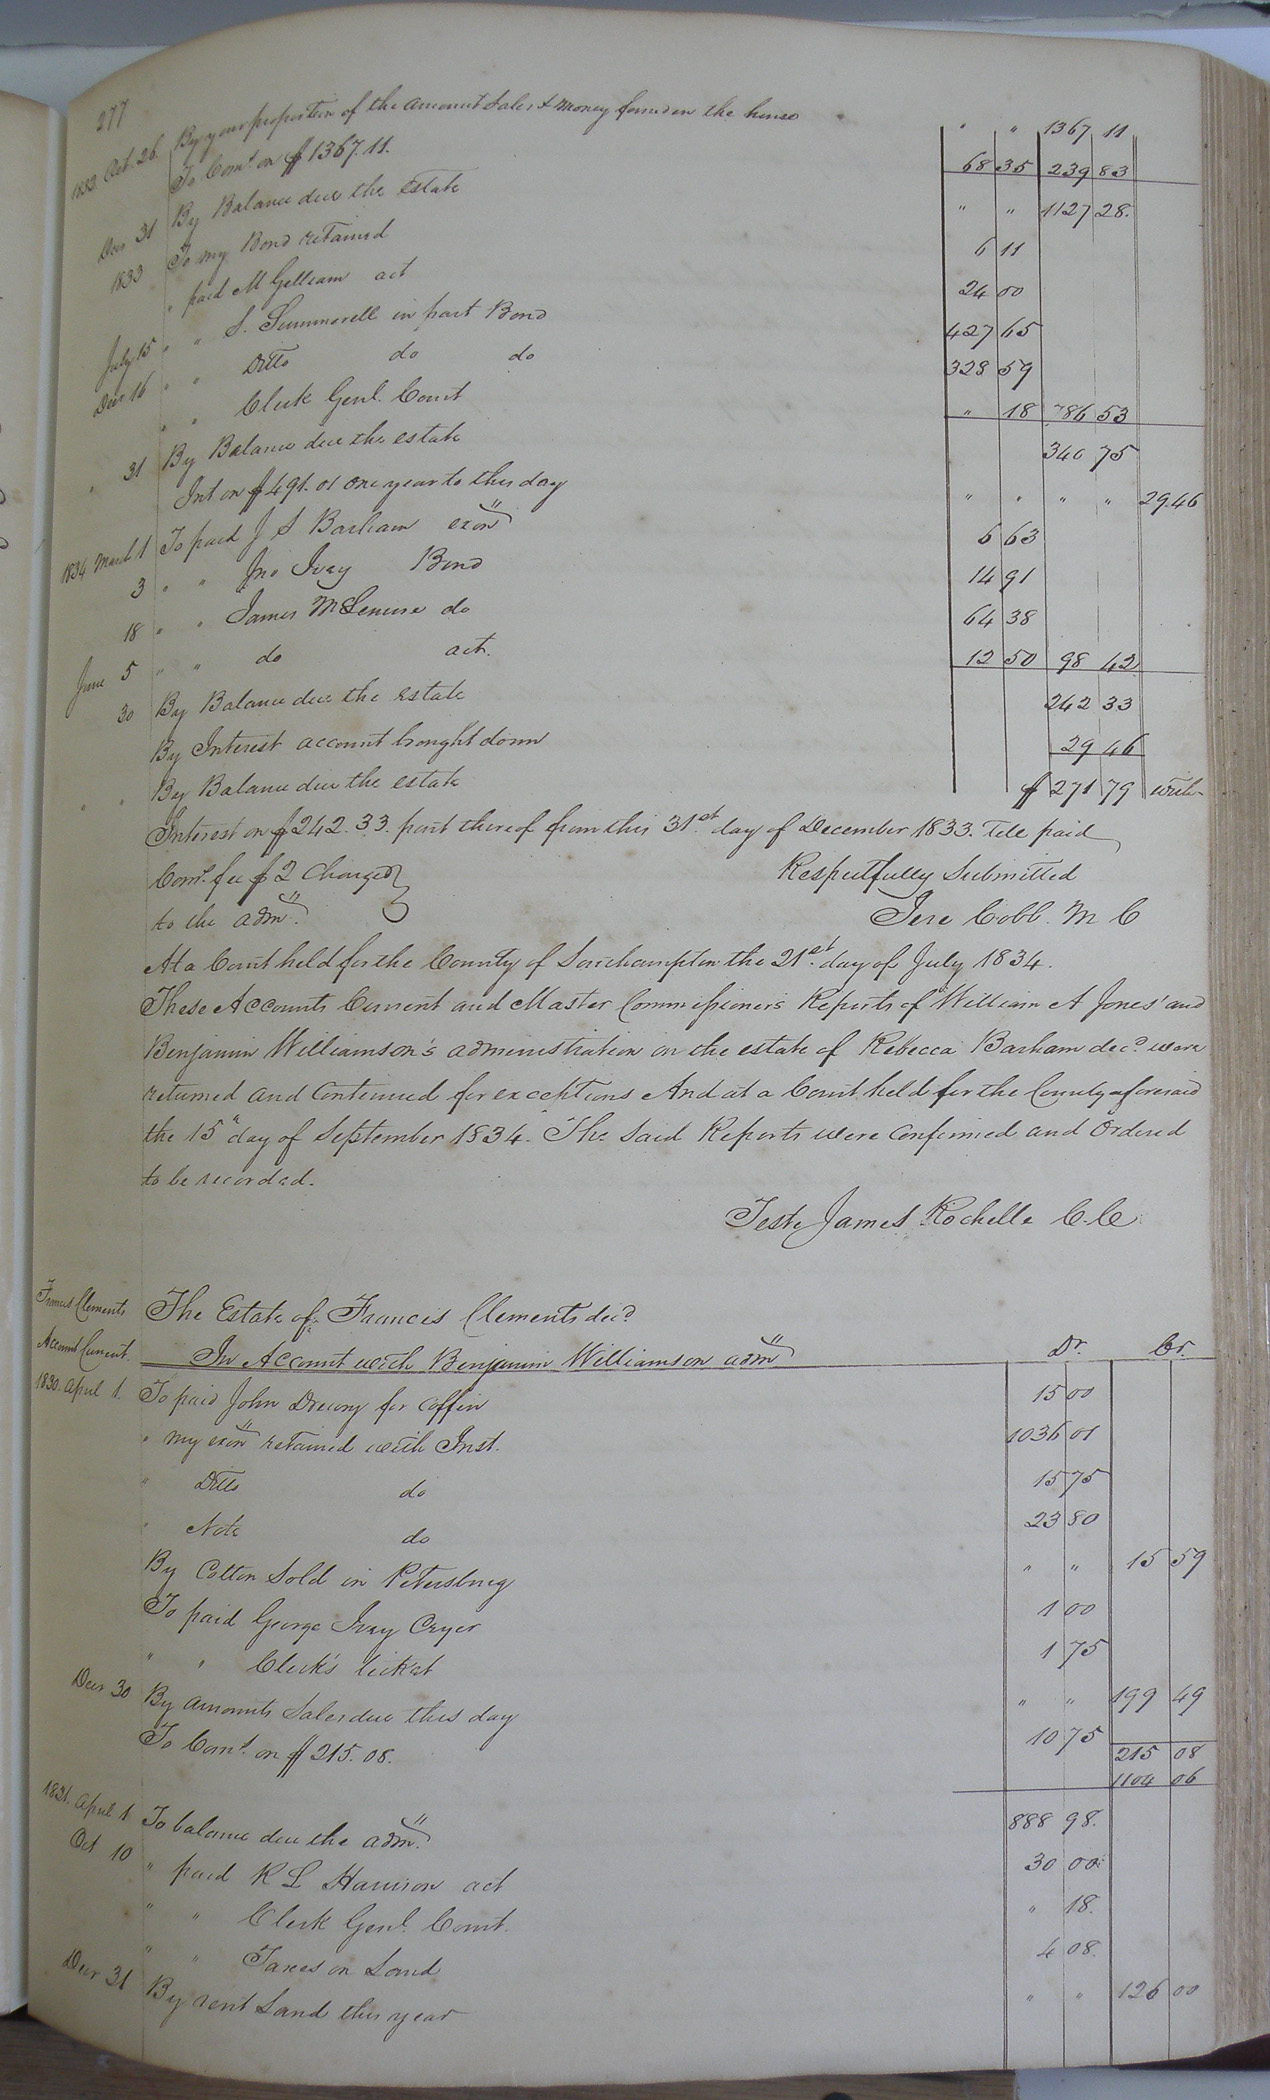 277
1832. Oct. 26. By your proportion of the amount Sales & money found in the house " " 1367 11
To Comn. on $1367.11. 68 35 239 83
Decr 31 By Balance due the Estate " " 1127 28.
1833 To my Bond retained 6 11
" paid M Gilliam act 24 00
July 15 " " S. Summerell in part Bond 427 65
Decr 16 " " Ditto do do 328 59
" " Clerk Genl. Court " 18 786 53
" 31 By Balance due the estate 340 75
Int on $491.01 one year to this day " " " " 29.46
1834 March 1 To paid J S Barham exon 6 63
3 " " Jno Ivey Bond 14 91
18 " " James McLemore do 64 38
June 5 " " do act. 12 50 98 42
30 By Balance due the estate 242 33
By Interest account brought down 29 46
" " By Balance due the estate $ 271 79 with
Interest on $242.33. part thereof from this 31st day of December 1833. till paid
Comr. fee $2 Charged
to the adm.
Respectfully Submitted
Jere Cobb. M C
At a Court held for the County of Southampton the 21st. day of July 1834.
These Accounts Current and Master Commissioner's Reports of William A Jones' and
Benjamin Williamson's administration on the estate of Rebecca Barham decd were
returned and Continued for exceptions And at a Court held for the County aforesaid
the 15" day of September 1834. The Said Reports were Confirmed and Ordered
to be recorded.
Teste James Rochelle C.C.
Francis Clements
Account Current.
The Estate of Francis Clements decd
In Account with Benjamin Williamson adm Dr. Cr.
1830. April 1. To paid John Drewry for Coffin 15 00
" my exon retained with Inst. 1036 01
" Ditto do 15 75
" Note do 23 80
By Cotton Sold in Petersburg " " 15 59
To paid George Ivey Cryer 1 00
" " Clerk's ticket 1 75
Decr 30 By amounts Sales due this day " " 199 49
To Comn. on $215.08. 10 75 215 08
1104 06
1831. April 1 To balance due the adm. 888 98.
Oct 10 " paid R L Harrison act 30 00.
" " Clerk Genl. Court. " 18.
" " Taxes on Land 4 08.
Decr 31 By rent Land this year " " 126 00